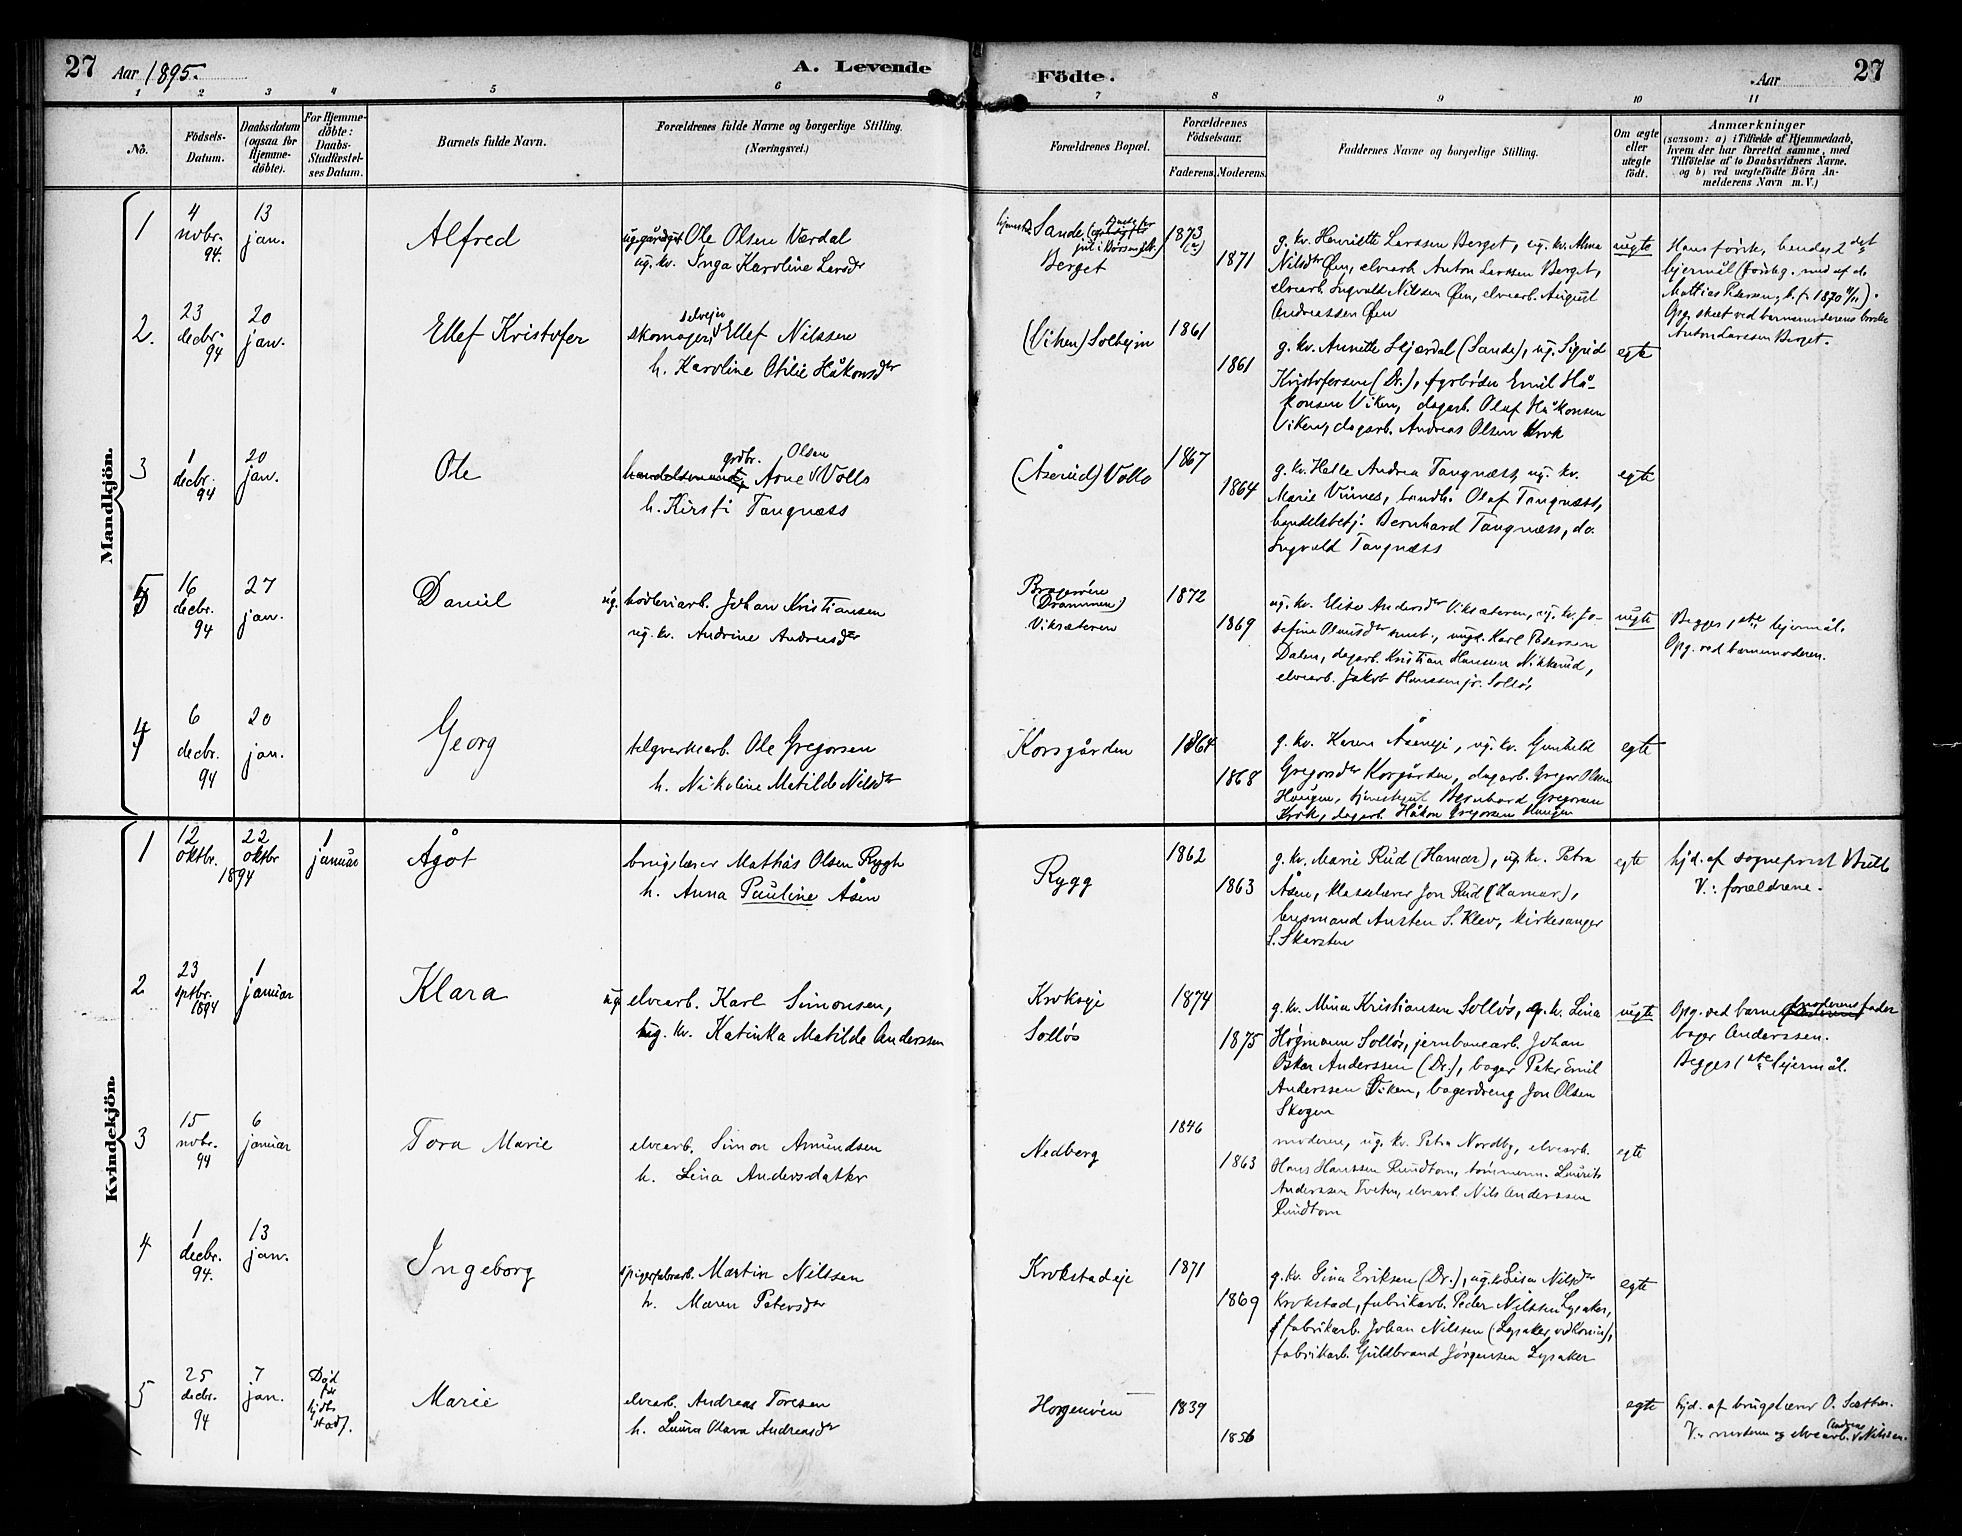 27 Aar 1895. A. Levende Födte. Aar 27
1 2 3 4 5 6 7 8 9 10 11
No. Födsels-Datum. Daabsdatum (ogsaa for Hjemme-döbte). For Hjemme-döbte: Daabs-Stadfæstel-ses Datum. Barnets fulde Navn. Forældrenes fulde Navne og borgerlige Stilling. (Næringsvei.) Forældrenes Bopæl. Forældrenes Födselsaar. Faderens. Moderens. Faddernes Navne og borgerlige Stilling. Om ægte eller uægte födt. Anmærkninger
(saasom: a) i Tilfælde af Hjemmedaab, hvem der har forrettet samme, med Tilföielse af to Daabsvidners Navne. og b) ved uægtefödte Börn An-melderens Navn m. V.)
Mandkjön.
1 4 novbr. 94. 13 jan. Alfred
Ole Olsen Værdal
ug. kv. Inga Karoline Larsdr
Sande
Berget
1873
1871
g. kv. Henriette Larssen Berget, ug. kv. Alma
Nilsdr Øen, elvearb. Anton Larssen Berget,
elvearb. Ingvald Nilssen Øen, elvearb. August
Andreassen Øen
uegte
Hansførte, hendes 2det
lejermål
Mattias Pedersen, 1870
Opg. skeet ved barnemoderens broder
Anton Larssen Berget.
2. 23 decbr. 94 20 jan. Ellef Kristofer
selvejer
skomager Ellef Nilssen
h. Karoline Otilie Håkonsdr
(Viken) Solbejm
1861
1861
g. kv. Annette Skjærdal (Sande), ug. Sigrid
Kristofersen (Dr.), fyrbøder Emil Hå-
konsen Viken, dagarb. Olaf Håkonsen
Viken, dagarb. Andreas Olsen Krok
egte
3 1 decbr. 94 20 jan. Ole
grdbr. Olsen
handelsmand Arne Vollo
h. Kirsti Tangnæss
(Åserud) Vollo
1867
1864
g. kv. Helle Andrea Tangnæss, ug. kv.
Marie Vinnes, landh. Olaf Tangnæss,
handelsbetj. Bernhard Tangnæss, do.
Ingvald Tangnæss
egte
5 16 decbr. 94 27 jan. Daniel
ug. høvleriarb. Johan Kristiansen
ug. kv. Andrine Andreasdr
Bragerøen
(Drammen)
Viksæteren
1872
1869
ug. kv. Elise Andersdr Viksæteren, ug. kv. Jo-
sefine Olausdr smst., ungk. Karl Pedersen
Dalen, dagarb. Kristian Hansen Nikkerud,
elvearb. Jakob Hanssen jr. Solløs
uegte
Begges 1ste lejermål.
Opg. ved barnemoderen.
4 6 decbr. 94 20 jan. Georg
telgverksarb. Ole Gregorsen
h. Nikoline Matilde Nilsdr
Korsgården
1864
1868
g. kv. Karen Åseneje, ug. kv. Gunhild
Gregorsdr Korsgården, dagarb. Gregor Olsen
Haugen, tjenestegut Bernhard Gregorsen
Krok, dagarb. Håkon Gregorsen Haugen
egte
Kvindekjön.
1 12 oktbr. 22 oktbr 1894 1 januar Ågot
brugslærer Mathias Olsen Rygh
h. Anna Pauline Åsen
Rygg
1862
1863
g. kv. Marie Rud (Hamar), ug. kv. Petra
Åsen, klasselærer Jon Rud (Hamar),
lensmand Austen S. Klev, kirkesanger
S. Skarsten
egte
hjd. af sogneprest Bull
V.: forældrene.
2 23 sptbr. 1894 1 januar Klara
ug. elvearb. Karl Simonsen,
ug. kv. Katinka Matilde Anderssen
Krokseje
Solløs
1874
1875
g. kv. Mina Kristiansen Solløs, g. kv. Lina
Høgmann Solløs, jernbanearb. Johan
Oskar Anderssen (Dr.), bager Peter Emil
Anderssen Viken, bagerdreng Jon Olsen
Skogen
uegte
Opg. ved barnemoderens fader
bager Anderssen.
Begges 1ste lejermål.
3 15 novbr. 94 6 januar Tora Marie
elvearb. Simon Amundsen
h. Lina Andersdatter
Nedberg
1846
1863
moderen, ug. kv. Petra Nordby, elvearb.
Hans Hanssen Rundtom, tømmerm. Laurits
Anderssen Tveten, elvearb. Nils Anderssen
Rundtom
egte
4 1 decbr. 94. 13 jan. Ingeborg
spigerfabarb. Martin Nilssen
h. Maren Petersdr
Krokstadeje
1871
1869
g. kv. Gina Eriksen (Dr.), ug. kv. Lisa Nilsdr
Krokstad, fabrikarb. Peder Nilssen Lysaker,
fabrikarb. Johan Nilssen (Lysaker v. Kornia),
fabrikarb. Guldbrand Jørgensen Lysaker
egte
5 25 decbr. 94 7 jan. Død før hjdbs stadf. Marie
elvearb. Andreas Toresen
h. Laura Olava Andreasdr
Horgenøen
1839
1856
egte
hjd. af brugslærer O. Sæther.
V.: moderen og elvearb. Andreas Nilssen.